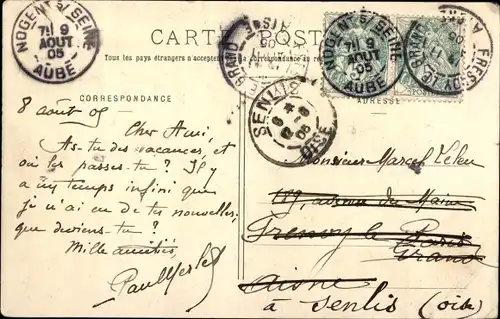 CARTE POSTALE
Tous les pays étrangers n'acceptent
CORRESPONDANCE
ADRESSE
NOGENT S/ SEINE
7H 9
AOUT
05
AUBE
NOGENT S/ SEINE
7H 9
AOUT
05
AUBE
FRESNOY-LE-GRAND
SENLIS
OISE
8 août 05
Cher Ami,
As-tu des vacances, et
où les passes-tu? Il y
a un temps infini que
je n'ai eu de tes nouvelles,
que deviens-tu?
Mille amitiés,
Paul
Monsieur Marcel Leleu
189, avenue du Maine
Paris
Fresnoy le Grand
Aisne
à Senlis (Oise)